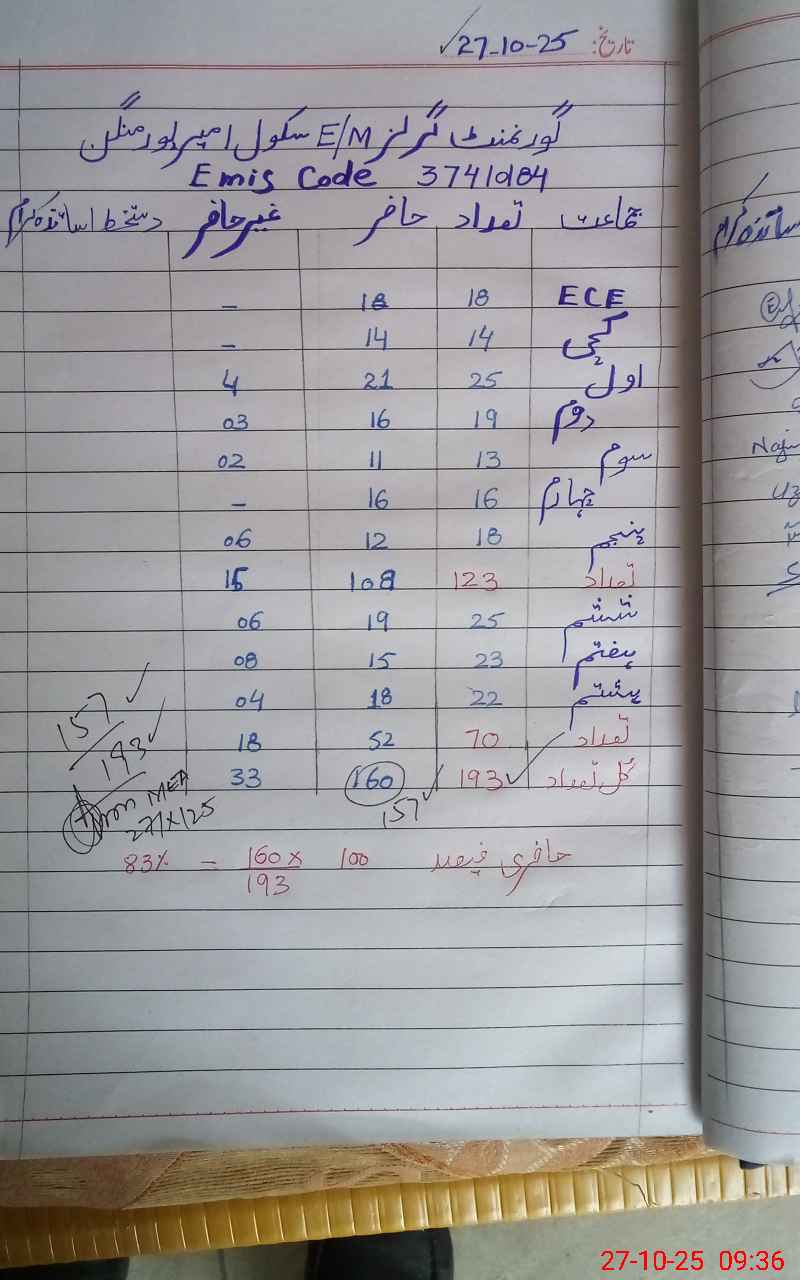 تاریخ: 27-10-25
گورنمنٹ گرلز E/M سکول امیرپور منگن
Emis Code 37410184
جماعت تعداد حاضر غیر حاضر دستخط اساتذہ کرام
ECE 18 18 –
کچی 14 14 –
اول 25 21 4
دوم 19 16 03
سوم 13 11 02
چہارم 16 16 –
پنجم 18 12 06
تعداد 123 108 15
ششم 25 19 06
ہفتم 23 15 08
ہشتم 22 18 04
تعداد 70 52 18
کل تعداد 193 160 33
157
157
193
MEA
27/X/25
حاضری فیصد 100 160x/193 = 83%
27-10-25 09:36